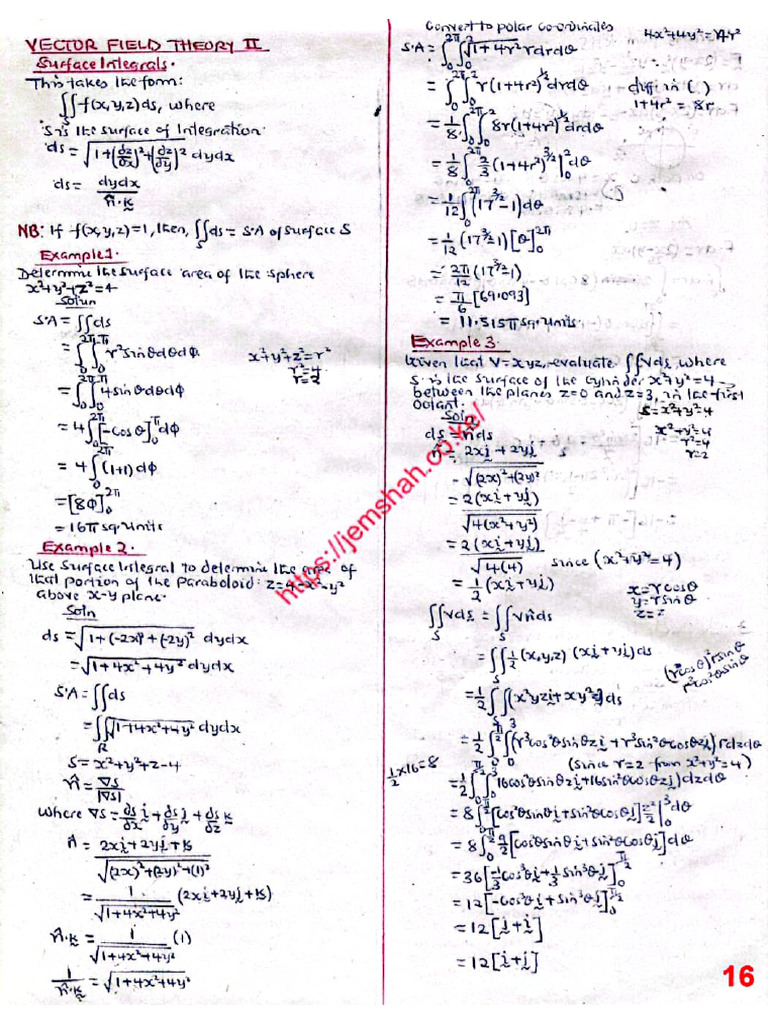 VECTOR FIELD THEORY II
Surface Integrals.
This takes the form:
∬f(x,y,z)ds, where
S
S is the surface of Integration.
ds = √(1+(∂z/∂x)²+(∂z/∂y)²) dydx
ds = dydx/n̂·k
NB: If f(x,y,z)=1, then, ∬ds = S.A of surface S
Example 1.
Determine the surface area of the sphere
x²+y²+z²=4
Solun
S.A = ∬ds
= ∫₀^2π∫₀^π r²sinθdθdϕ
x²+y²+z²=r²
r²=4
r=2
= ∫₀^2π∫₀^π 4sinθdθdϕ
= 4∫₀^2π[-cosθ]₀^π dϕ
= 4∫₀^2π(1+1)dϕ
= [8ϕ]₀^2π
= 16π sq. units
Example 2.
Use Surface Integral to determine the area of
that portion of the Paraboloid: z=4-x²-y²
above x-y plane.
Soln
ds = √(1+(-2x)²+(-2y)²) dydx
= √(1+4x²+4y²) dydx
S.A = ∬ds
= ∬√(1+4x²+4y²) dydx
R
S = x²+y²+z-4
n̂ = ∇S/|∇S|
where ∇S = ∂s/∂x i + ∂s/∂y j + ∂s/∂z k
n̂ = (2xi+2yj+k)/√((2x)²+(2y)²+(1)²)
= 1/√(1+4x²+4y²) (2xi+2yj+k)
n̂·k = 1/√(1+4x²+4y²) (1)
1/n̂·k = √(1+4x²+4y²)
Convert to polar coordinates
4x²+4y²=4r²
S.A = ∫₀^2π∫₀^2 √(1+4r²) rdrdθ
= ∫₀^2π∫₀^2 r(1+4r²)^½ drdθ
diff. in ( )
1+4r² = 8r
= 1/8 ∫₀^2π∫₀^2 8r(1+4r²)^½ drdθ
= 1/8 ∫₀^2π 2/3 (1+4r²)^3/2 |₀^2 dθ
= 1/12 ∫₀^2π (17^3/2 -1)dθ
= 1/12 (17^3/2 -1)[θ]₀^2π
= 2π/12 (17^3/2 -1)
= π/6 [69.093]
= 11.515π sq. units.
Example 3.
Given that V = xyz, evaluate ∬Vds, where
S is the surface of the cylinder x²+y²=4
between the planes z=0 and z=3, in the first
Octant.
S=x²+y²-4
Soln
ds = n̂ds
x²+y²=4
r²=4
r=2
n̂ = 2xi+2yj/√((2x)²+(2y)²)
= 2(xi+yj)/√(4(x²+y²))
= 2(xi+yj)/√(4(4)) since (x²+y²=4)
= 1/2 (xi+yj)
x=rcosθ
y=rsinθ
z=z
∬Vds = ∬Vn̂ds
S S
= ∬½(x,y,z) (xi+yj)ds
S
(r cosθ)²rsinθ
r³cos²θsinθ
= ½∬(x²yzi+xy²zj)ds
S
= ½∫₀^π/2∫₀^3 (r³cos²θsinθzi + r³sin²θcosθzj) rdzdθ
(since r=2 from x²+y²=4)
½×16=8
= ½∫₀^π/2∫₀^3 (16cos²θsinθzi+16sin²θcosθzj)dzdθ
= 8∫₀^π/2 [cos²θsinθi+sin²θcosθj] z²/2 |₀^3 dθ
= 8∫₀^π/2 9/2 [cos²θsinθi+sin²θcosθj]dθ
= 36[-1/3 cos³θi+1/3 sin³θj]₀^π/2
= 12[-cos³θi+sin³θj]₀^π/2
= 12[i+j]
= 12[i+j]
https://jemshah.co.ke/
16